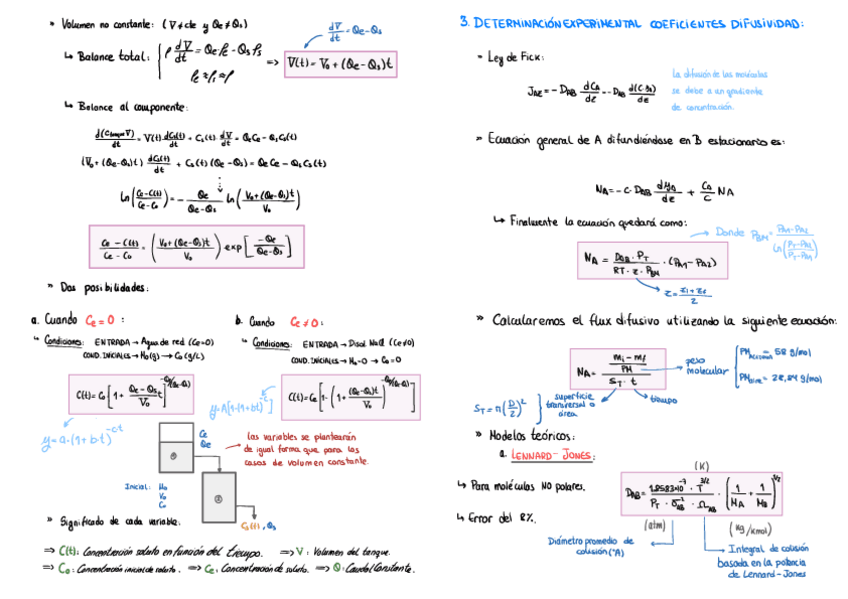 » Volumen no constante: (V≠cte y Qe≠Qs)
dV/dt = Qe-Qs
↳ Balance total: { ρ dV/dt = Qe ρe - Qs ρs
ρe≈ρs≈ρ
=> V(t) = V₀ + (Qe-Qs)t
↳ Balance al componente:
dV/dt = Qe Ce - Qs Cs(t)
(V₀+(Qe-Qs)t) dCs(t)/dt + Cs(t) (Qe-Qs) = Qe Ce - Qs Cs(t)
ln((Ce-C(t))/(Ce-C₀)) = - Qe/(Qe-Qs) ln((V₀+(Qe-Qs)t)/V₀)
= ((V₀+(Qe-Qs)t)/V₀) exp[-Qe/(Qe-Qs)]
» Dos posibilidades:
a. Cuando Ce=0:
↳ Condiciones: ENTRADA → Agua de red (Ce=0)
COND. INICIALES → M₀(g) → C₀(g/L)
b. Cuando Ce≠0:
↳ Condiciones: ENTRADA → Disol. NaCl (Ce≠0)
COND. INICIALES → M₀=0 → C₀=0
y=a·(1+bt)^-ct
Ce
Qe
las variables se plantearán
de igual forma que para los
casos de volumen constante.
Inicial: M₀
V₀
C₀
Cs(t), Qs
» Significado de cada variable:
=> C(t): Concentración soluto en función del tiempo. => V: Volumen del tanque.
=> C₀: Concentración inicial de soluto. => Ce: Concentración de soluto. => Q: Caudal Constante.
3. DETERMINACIÓN EXPERIMENTAL COEFICIENTES DIFUSIVIDAD:
- Ley de Fick:
La difusión de las moléculas
se debe a un gradiente
de concentración.
» Ecuación general de A difundiéndose en B estacionario es:
NA = -C·DAB dyA/dz + CA/C NA
↳ Finalmente la ecuación quedará como:
Donde PBM = (PA1-PA2)/ln((PT-PA2)/(PT-PA1))
NA = (DAB·PT)/(RT·z·PBM) · (PA1-PA2)
» Calcularemos el flux difusivo utilizando la siguiente ecuación:
NA = ((mi-mf)/PM)/(ST·t)
peso
molecular
PM Acetona = 58 g/mol
PM aire = 28,84 g/mol
ST = π(D/2)²
superficie
transversal o
área
tiempo
» Modelos teóricos:
a. LENNARD-JONES:
(K)
↳ Para moléculas NO polares.
↳ Error del 8%.
DAB = (1.8583·10⁻⁷ · T^3/2)/(PT · σAB² · ΩAB) · (1/MA + 1/MB)^1/2
(atm)
(Kg/Kmol)
Diámetro promedio de
colisión (°A)
Integral de colisión
basada en la potencia
de Lennard-Jones